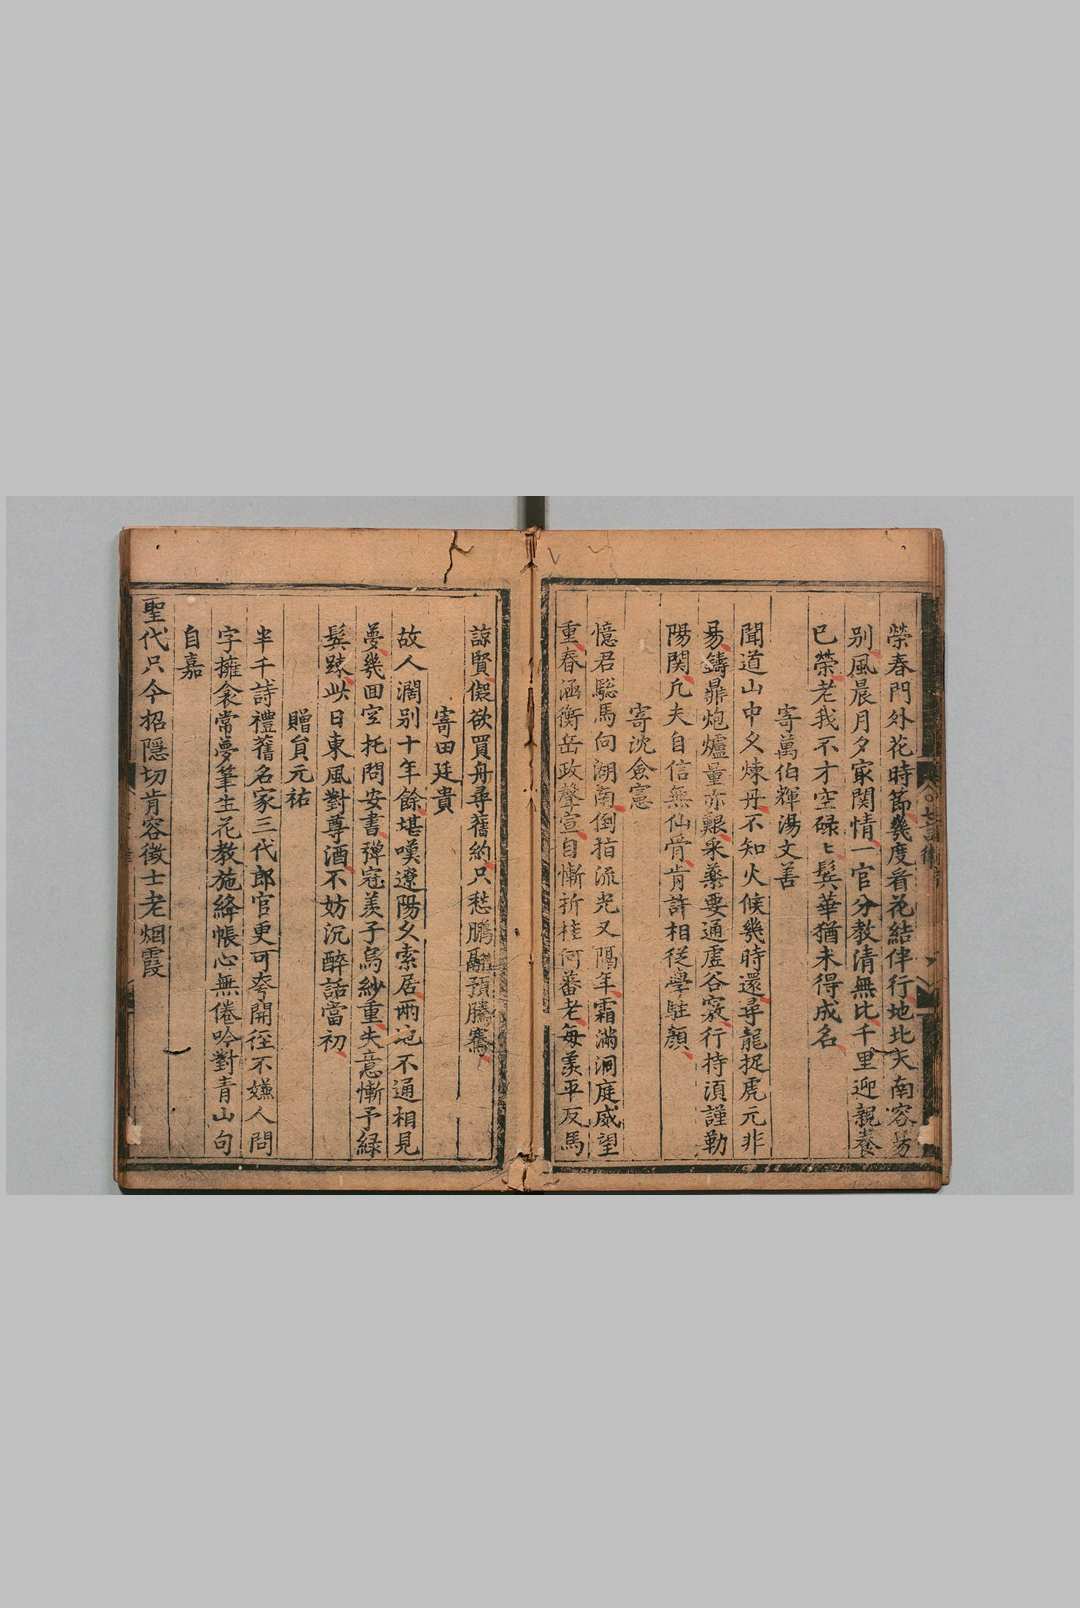 榮春門外花時節幾度看花結伴行地北天南容易
別風晨月夕㝡関情一官分教清無比千里迎親養
已榮老我不才空碌〻鬂華猶未得成名
寄萬伯輝湯文善
聞道山中久煉丹不知火候幾時還尋龍捉虎元非
易鑄鼎炮爐量亦艱采藥要通虛谷竅行持湏謹勒
陽関凢夫自信無仙骨肯許相從學駐顏
寄沈僉憲
憶君驄馬向湖南倒指流光又隔年霜滿洞庭威望
重春涵衡岳政聲宣自慚折桂何蕃老每羡平反馬
諒賢儗欲買舟尋舊約只愁鵬翮預騰騫
寄田廷貴
故人濶别十年餘堪嘆遼陽久索居兩地不通相見
夢幾回空托問安書彈冠羡子烏紗重失意慚予緑
鬂踈此日東風對尊酒不妨沉醉話當初
贈貟元祐
半千詩禮舊名家三代郎官更可夸開徑不嫌人問
字擁衾常夢筆生花教施絳帳心無倦吟對青山句
自嘉
聖代只今招隱切肯容徵士老烟霞